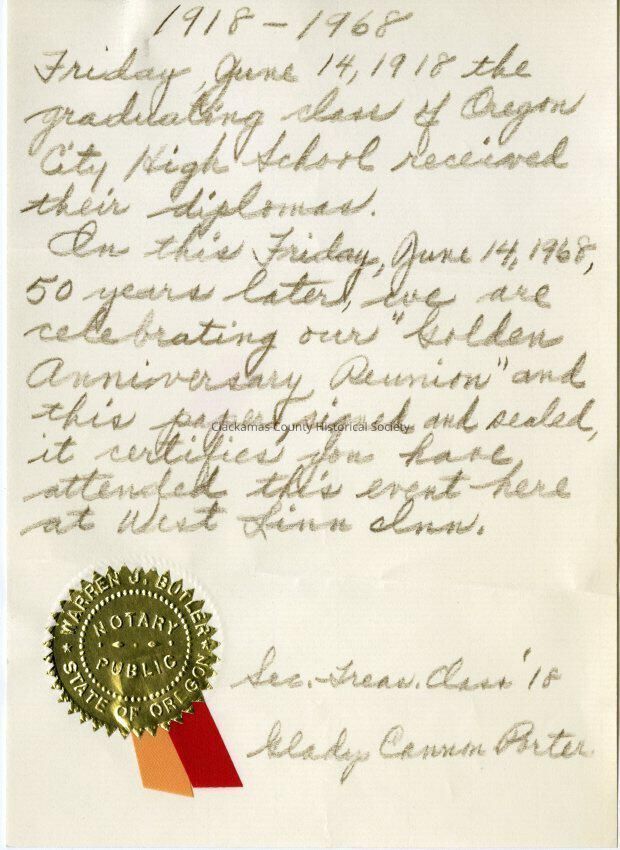 1918 - 1968
Friday, June 14, 1918 the
graduating class of Oregon
City High School received
their diplomas.
On this Friday, June 14, 1968,
50 years later, we are
celebrating our "Golden
Anniversary Reunion" and
this paper, signed and sealed,
it certifies you have
attended this event here
at West Linn Inn.
Clackamas County Historical Society
WARREN J. BUTLER
NOTARY
PUBLIC
STATE OF OREGON
Sec.-Treas. Class '18
Gladys Cannon Porter